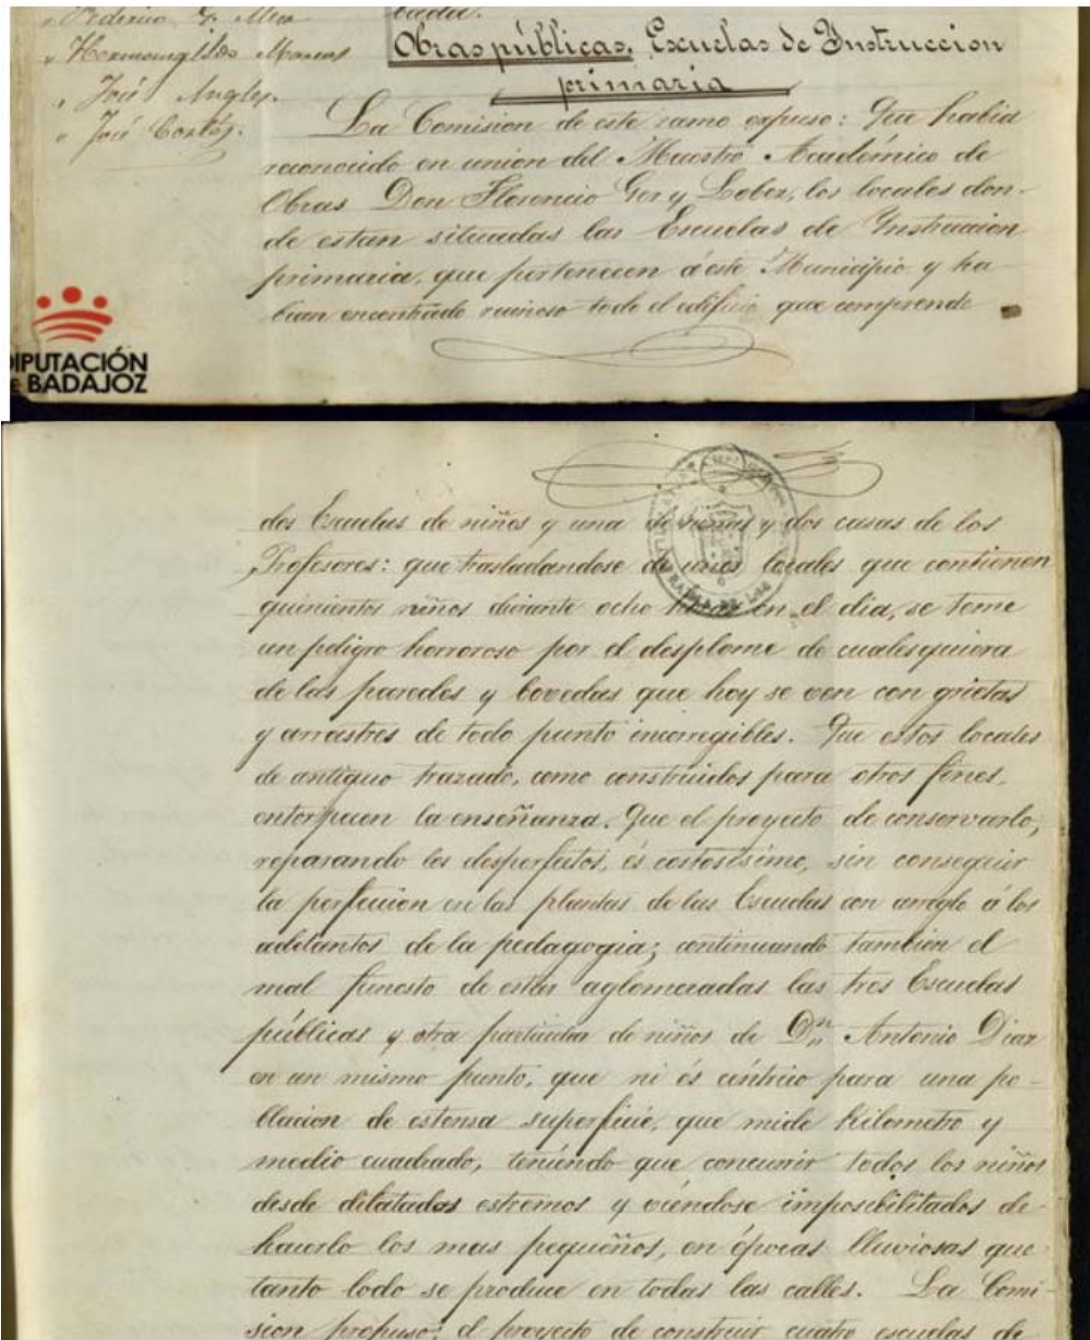 Federico G. Mera
" Hermenegildo Marcos
" José Angles.
" José Cortés.
Obras públicas. Escuelas de Instruccion
primaria
La Comision de este ramo expuso: Que habia
reconocido en union del Maestro Académico de
Obras Don Florencio Ger y Lobez, los locales don-
de estan situadas las Escuelas de Instruccion
primaria, que pertenecen á este Municipio y ha-
bian encontrado ruinoso todo el edificio que comprende
DIPUTACIÓN
DE BADAJOZ
dos Escuelas de niños y una de niñas y dos casas de los
Profesores: que trasladandose de unos locales que contienen
quinientos niños durante ocho horas en el dia, se teme
un peligro horroroso por el desplome de cualesquiera
de las paredes y bovedas que hoy se ven con grietas
y arrastres de todo punto incorregibles. Que estos locales
de antiguo trazado, como construidos para otros fines,
entorpecen la enseñanza. Que el proyecto de conservarlo,
reparando los desperfectos, és costosísimo, sin conseguir
la perfeccion en las plantas de las Escuelas con arreglo á los
adelantos de la pedagogia; continuando tambien el
mal funesto de estar aglomeradas las tres Escuelas
públicas y otra particular de niños de Dn Antonio Diaz
en un mismo punto, que ni és céntrico para una po-
blacion de estensa superficie, que mide kilometro y
medio cuadrado, teniendo que concurrir todos los niños
desde dilatados estremos y viéndose imposibilitados de
hacerlo los mas pequeños, en épocas lluviosas que
tanto lodo se produce en todas las calles. La Comi-
sion propuso: el proyecto de construir cuatro escuelas de